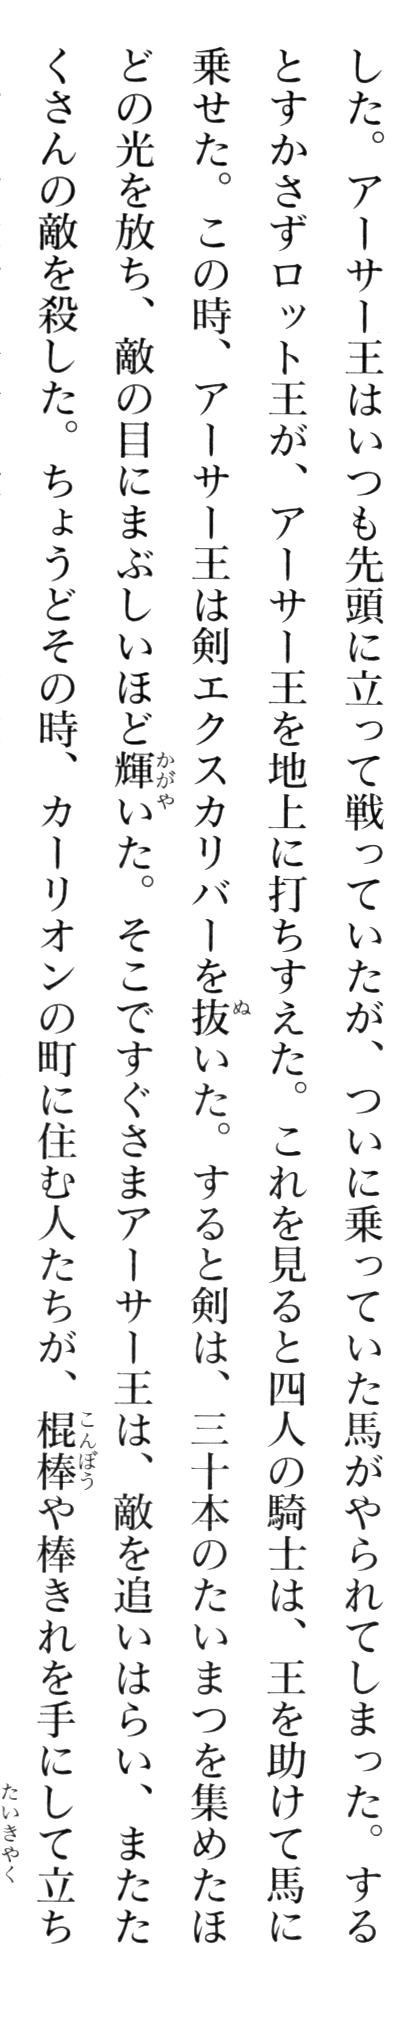 した。アーサー王はいつも先頭に立って戦っていたが、ついに乗っていた馬がやられてしまった。する
とすかさずロット王が、アーサー王を地上に打ちすえた。これを見ると四人の騎士は、王を助けて馬に
乗せた。この時、アーサー王は剣エクスカリバーを抜いた。すると剣は、三十本のたいまつを集めたほ
どの光を放ち、敵の目にまぶしいほど輝いた。そこですぐさまアーサー王は、敵を追いはらい、またた
くさんの敵を殺した。ちょうどその時、カーリオンの町に住む人たちが、棍棒や棒きれを手にして立ち
たいきやく